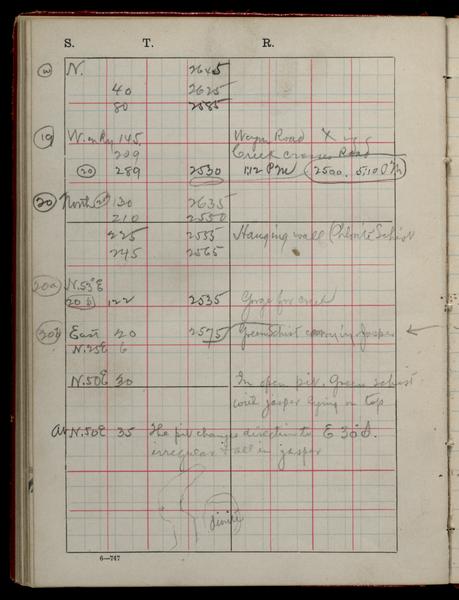 S. T. R.
N. 2645
40 2625
80 2585
19 W. on Ry 145. Wagon Road X
209 Creek crosses Road
20 289 2530 1:12 P.M 2500. 5:10 P.M
20 North 130 2635
210 2550
225 2555 Hanging wall Chlorite Schist
245 2565
20a N.53°E
20 b 122 2535 Gorge for creek
20b East 20 2575 Green Schist carrying Jasper ←
N.25E 6
N.50E 30 In open pit. Green schist
with jasper lying on top
At N.50E 35 The pit changes direction to E 30° S.
irregular & all in jasper
6—747